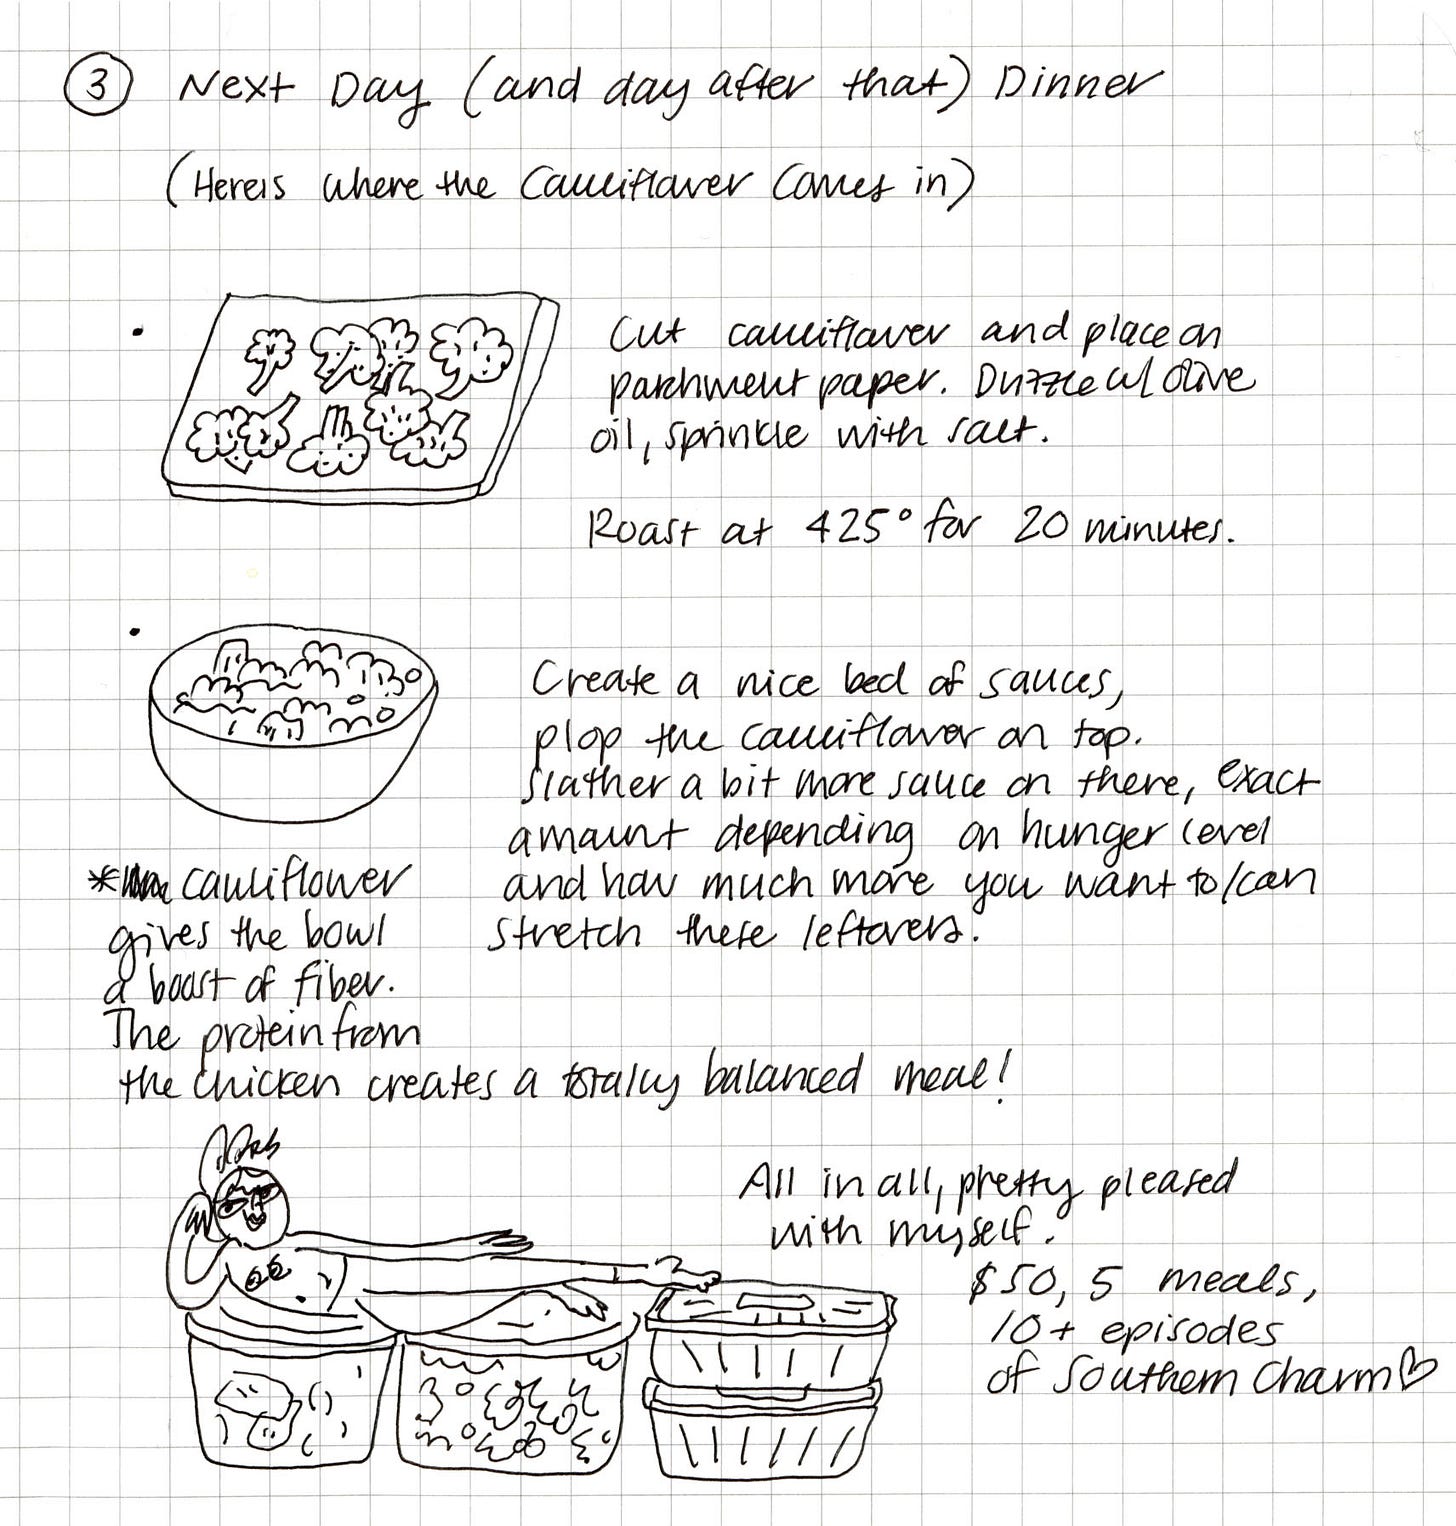 3 Next Day (and day after that) Dinner
(Here is where the Cauliflower Comes in)
Cut cauliflower and place on
parchment paper. Drizzle w/ olive
oil, sprinkle with salt.
Roast at 425° for 20 minutes.
Create a nice bed of sauces,
plop the cauliflower on top.
Slather a bit more sauce on there, exact
amount depending on hunger level
and how much more you want to/can
stretch these leftovers.
* cauliflower
gives the bowl
a boost of fiber.
The protein from
the chicken creates a totally balanced meal!
All in all, pretty pleased
with myself.
$50, 5 meals,
10+ episodes
of Southern Charm♡